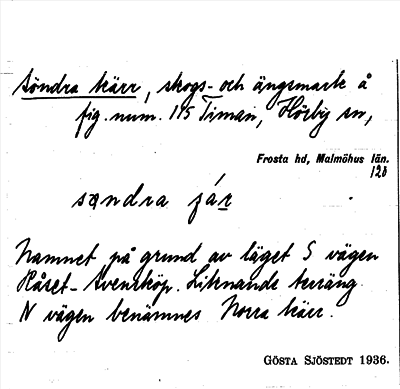 Söndra kärr, skogs- och ängsmark å
fig. num. 115 Timan, Hörby sn,
Frosta hd, Malmöhus län.
120
sɵndra ɟár
Namnet på grund av läget S vägen
Råset-Svensköp. Liknande terräng
N vägen benämnes Norra kärr.
GÖSTA SJÖSTEDT 1936.